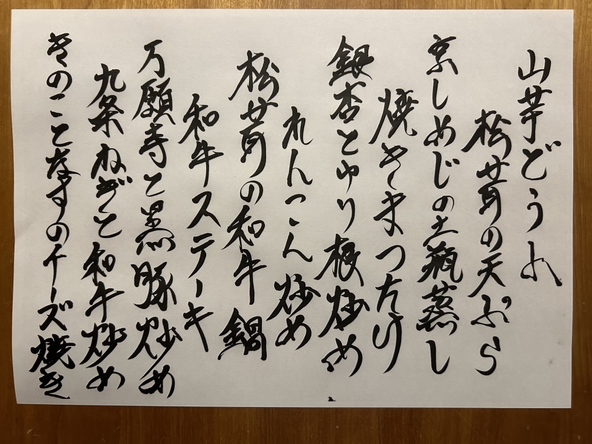 山芋どうふ
松茸の天ぷら
京しめじの土瓶蒸し
焼きまつたけ
銀杏とゆり根炒め
れんこん炒め
松茸の和牛鍋
和牛ステーキ
万願寺と黒豚炒め
九条ねぎと和牛炒め
きのことなすのチーズ焼き